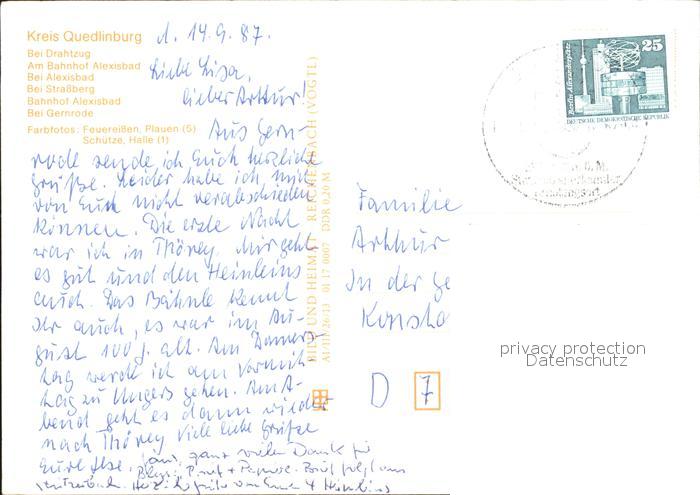 Kreis Quedlinburg
Bei Drahtzug
Am Bahnhof Alexisbad
Bei Alexisbad
Bei Straßberg
Bahnhof Alexisbad
Bei Gernrode
Farbfotos: Feuereißen, Plauen (5)
Schütze, Halle (1)
d. 14.9.87.
Liebe Lisa,
lieber Arthur!
Aus Gern-
rode sende ich Euch herzliche
Grüße. Leider habe ich mich
von Euch nicht verabschieden
können. Die erste Nacht
war ich in Thörey. Mir geht
es gut und den Heinleins
auch. Das Bähnle kennt
Ihr auch, es war im Au-
gust 100 J. alt. Am Donners-
tag werde ich am Vormit-
tag zu Ungers gehen. Am A-
bend geht es dann wieder
nach Thörey. Viele liebe Grüße
Eure Ilse,
ganz vielen Dank für
BILD UND HEIMAT REICHENBACH (VOGTL)
A1/III/26/13 01 17 0007 DDR 0,20 M
Berlin, Alexanderplatz
25
DEUTSCHE DEMOKRATISCHE REPUBLIK
Familie
Arthur
In der Ge
Konsta
D 7
privacy protection
Datenschutz